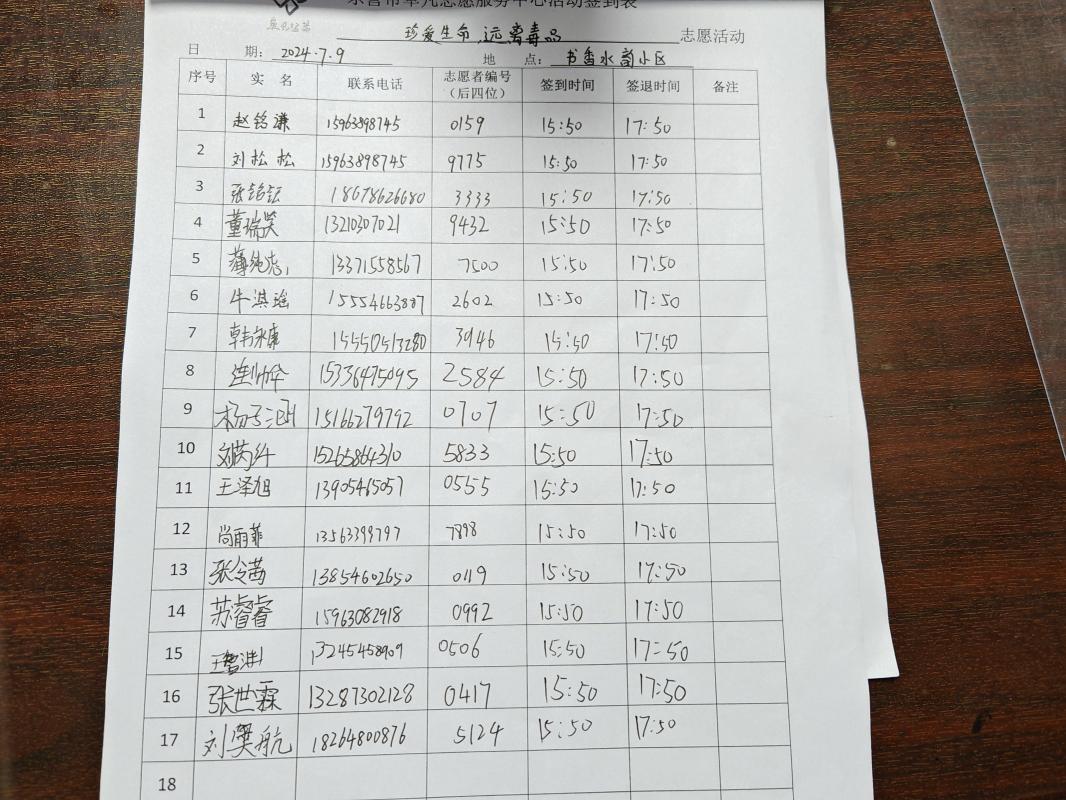 东营市阜凡志愿服务中心活动签到表
珍爱生命 远离毒品 志愿活动
日 期: 2024.7.9 地 点: 书香水岸小区
序号 实 名 联系电话 志愿者编号(后四位) 签到时间 签退时间 备注
1 赵铭谦 15963898745 0159 15:50 17:50
2 刘松松 15963898745 9775 15:50 17:50
3 张铭钰 18678626680 3333 15:50 17:50
4 董瑞笑 13210307021 9432 15:50 17:50
5 13371558567 7500 15:50 17:50
6 牛淇瑶 15554663887 2602 15:50 17:50
7 韩承康 15550513280 3946 15:50 17:50
8 连帅伞 15336475095 2584 15:50 17:50
9 杨子涵 15166279792 0707 15:50 17:50
10 刘芮纤 15265864310 5833 15:50 17:50
11 王泽旭 13905465057 0555 15:50 17:50
12 尚雨菲 13563399797 7898 15:50 17:50
13 张令茜 13854602650 0119 15:50 17:50
14 苏睿睿 15963082918 0992 15:50 17:50
15 13245458909 0506 15:50 17:50
16 张世霖 13287302128 0417 15:50 17:50
17 刘奥航 18264800876 5124 15:50 17:50
18